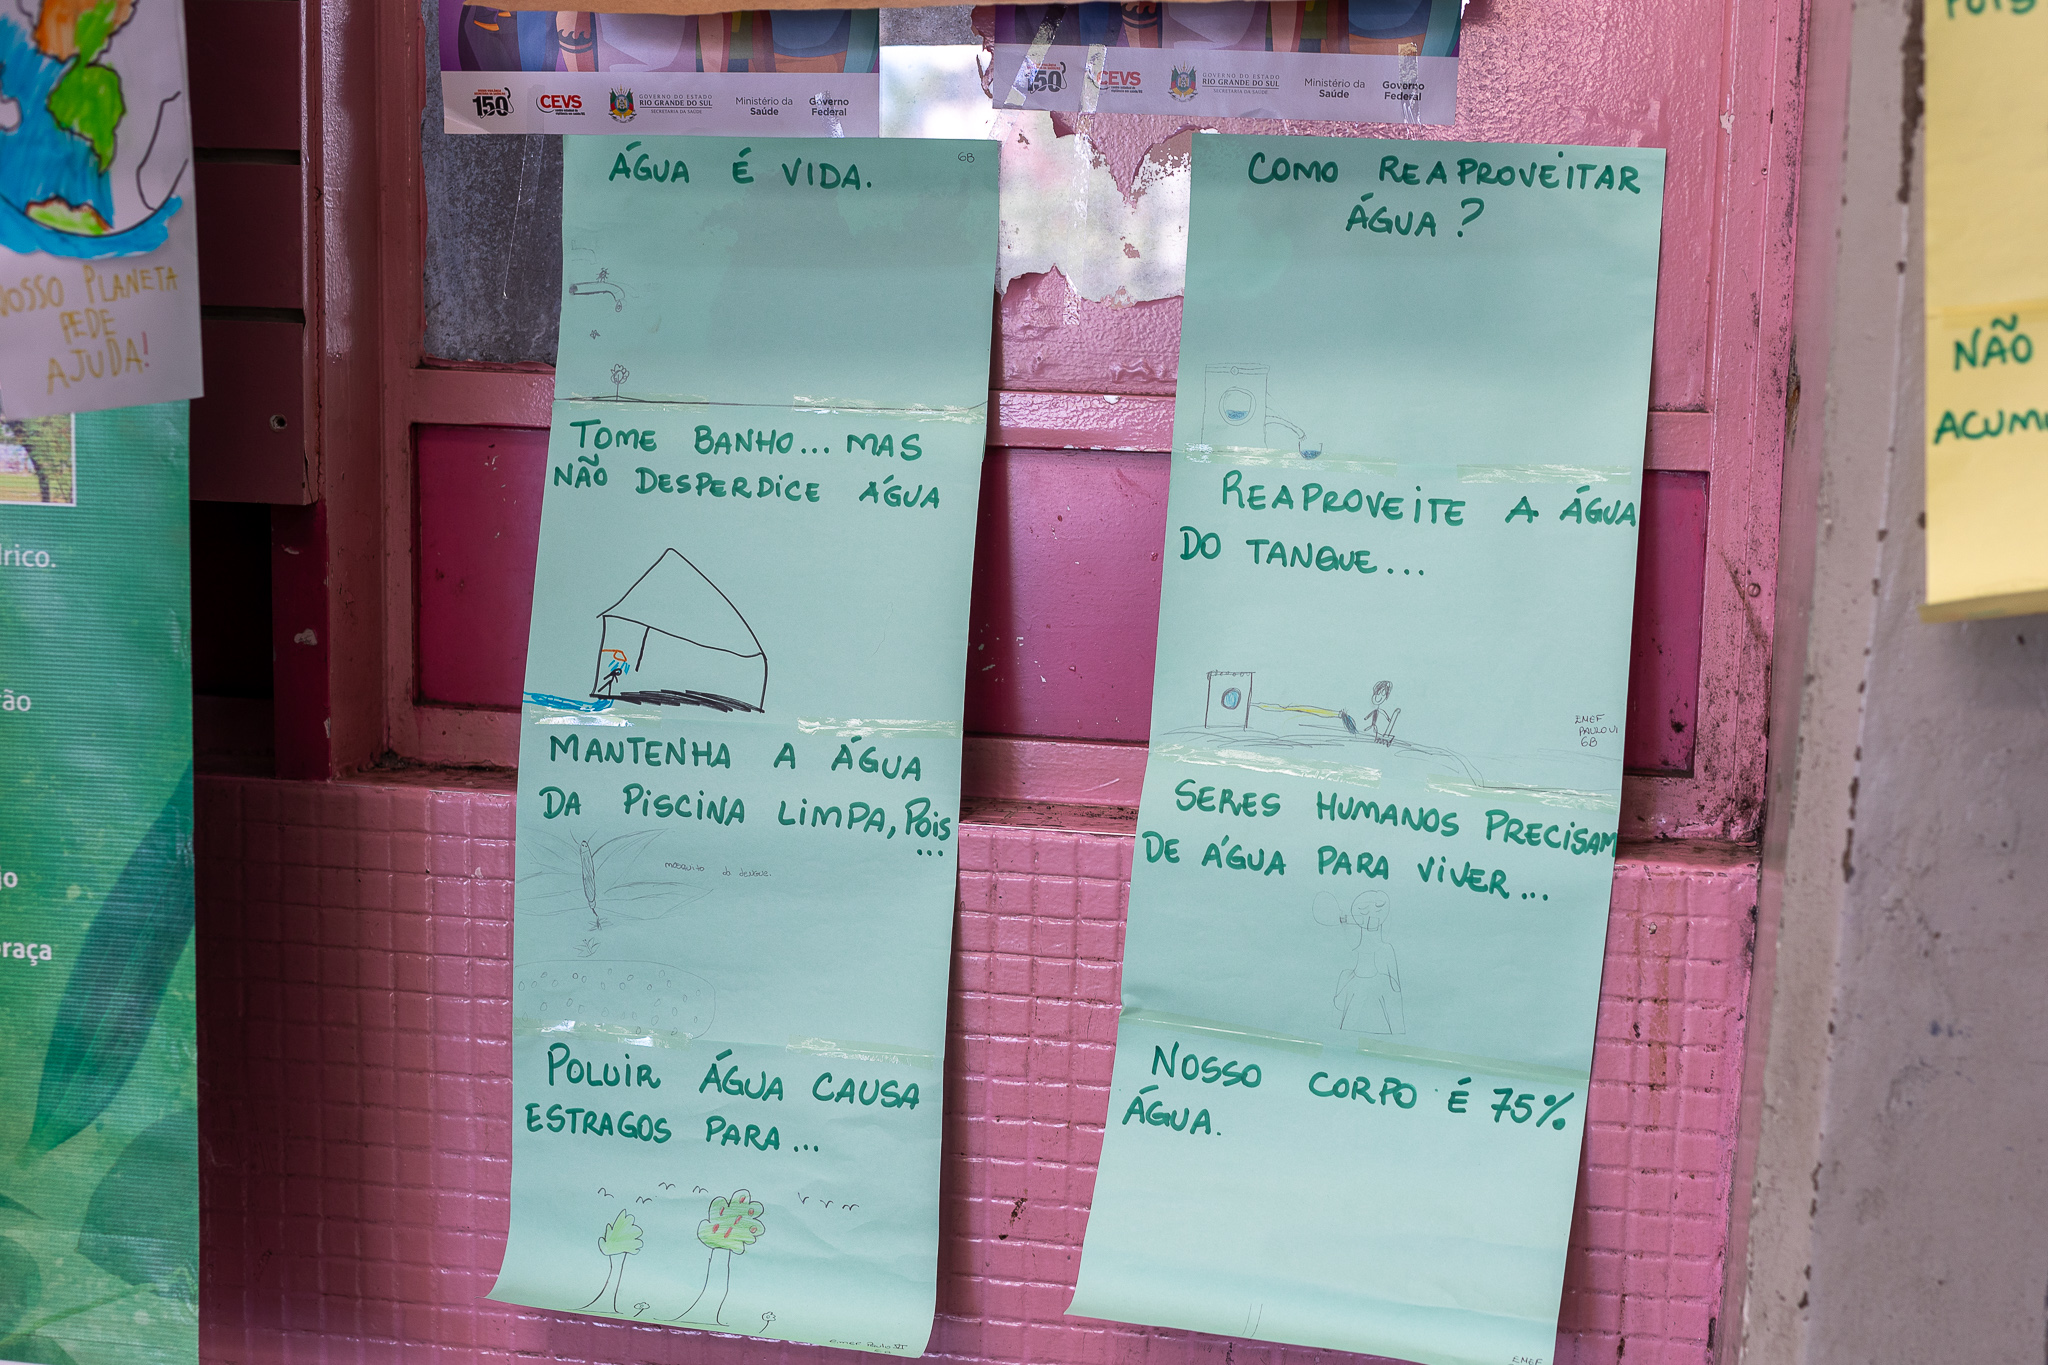 150
CEVS
GOVERNO DO ESTADO
RIO GRANDE DO SUL
SECRETARIA DA SAÚDE
Ministério da
Saúde
Governo
Federal
150
CEVS
GOVERNO DO ESTADO
RIO GRANDE DO SUL
SECRETARIA DA SAÚDE
Ministério da
Saúde
Governo
Federal
NOSSO PLANETA
PEDE
AJUDA!
drico.
ão
jo
raça
ÁGUA É VIDA.
6B
TOME BANHO... MAS
NÃO DESPERDICE ÁGUA
MANTENHA A ÁGUA
DA PISCINA LIMPA, POIS
...
mosquito da dengue.
POLUIR ÁGUA CAUSA
ESTRAGOS PARA...
COMO REAPROVEITAR
ÁGUA?
REAPROVEITE A ÁGUA
DO TANGUE...
EMEF
PAULO VI
6B
SERES HUMANOS PRECISAM
DE ÁGUA PARA VIVER...
NOSSO CORPO É 75%
ÁGUA.
EMEF
POIS
NÃO
ACUMU